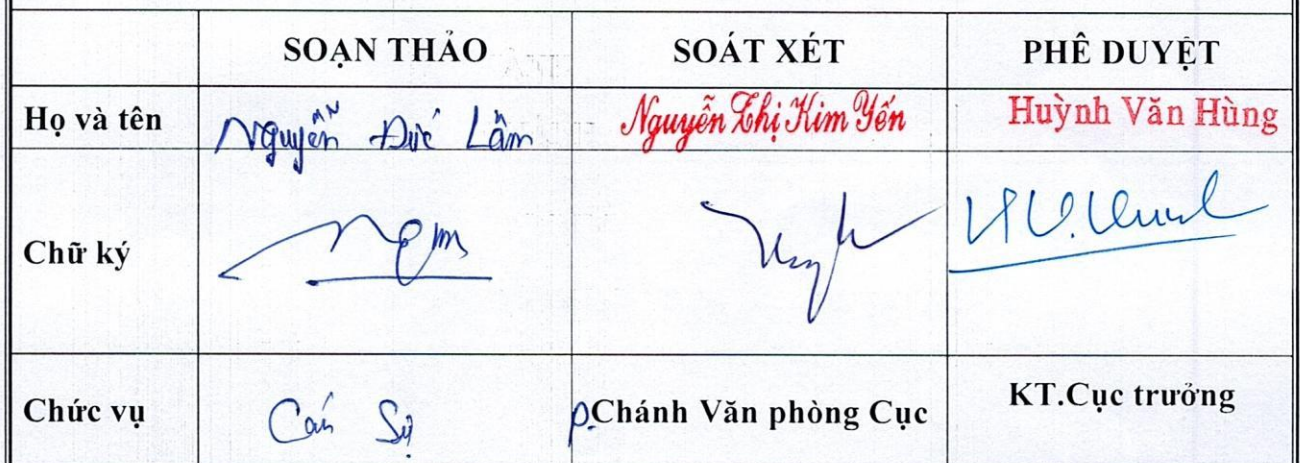 SOẠN THẢO SOÁT XÉT PHÊ DUYỆT
Họ và tên Nguyễn Đức Lâm Nguyễn Thị Kim Yến Huỳnh Văn Hùng
Chữ ký
Chức vụ Cán Sự P.Chánh Văn phòng Cục KT.Cục trưởng